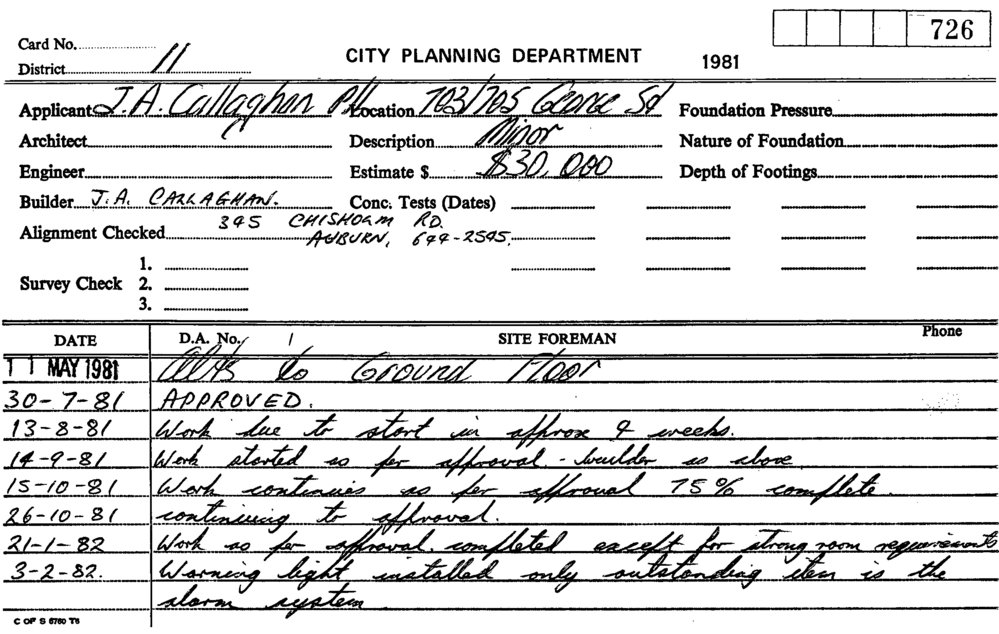 726
Card No.
District 11
CITY PLANNING DEPARTMENT 1981
Applicant J.A. Callaghan P/L Location 703/705 George St Foundation Pressure
Architect Description Minor Nature of Foundation
Engineer Estimate $ $30,000 Depth of Footings
Builder J.A. CALLAGHAN. Conc. Tests (Dates)
345 CHISHOLM RD.
Alignment Checked AUBURN, 644-2545.
1.
Survey Check 2.
3.
DATE D.A. No. SITE FOREMAN Phone
11 MAY 1981 Alts to Ground Floor
30-7-81 APPROVED.
13-8-81 Work due to start in approx 4 weeks.
14-9-81 Work started as per approval - builder as above
15-10-81 Work continues as per approval 75% complete.
26-10-81 continuing to approval.
21-1-82 Work as per approval. completed except for strong room requirements
3-2-82. Warning light installed only outstanding item is the
alarm system
C OF S 6760 T6